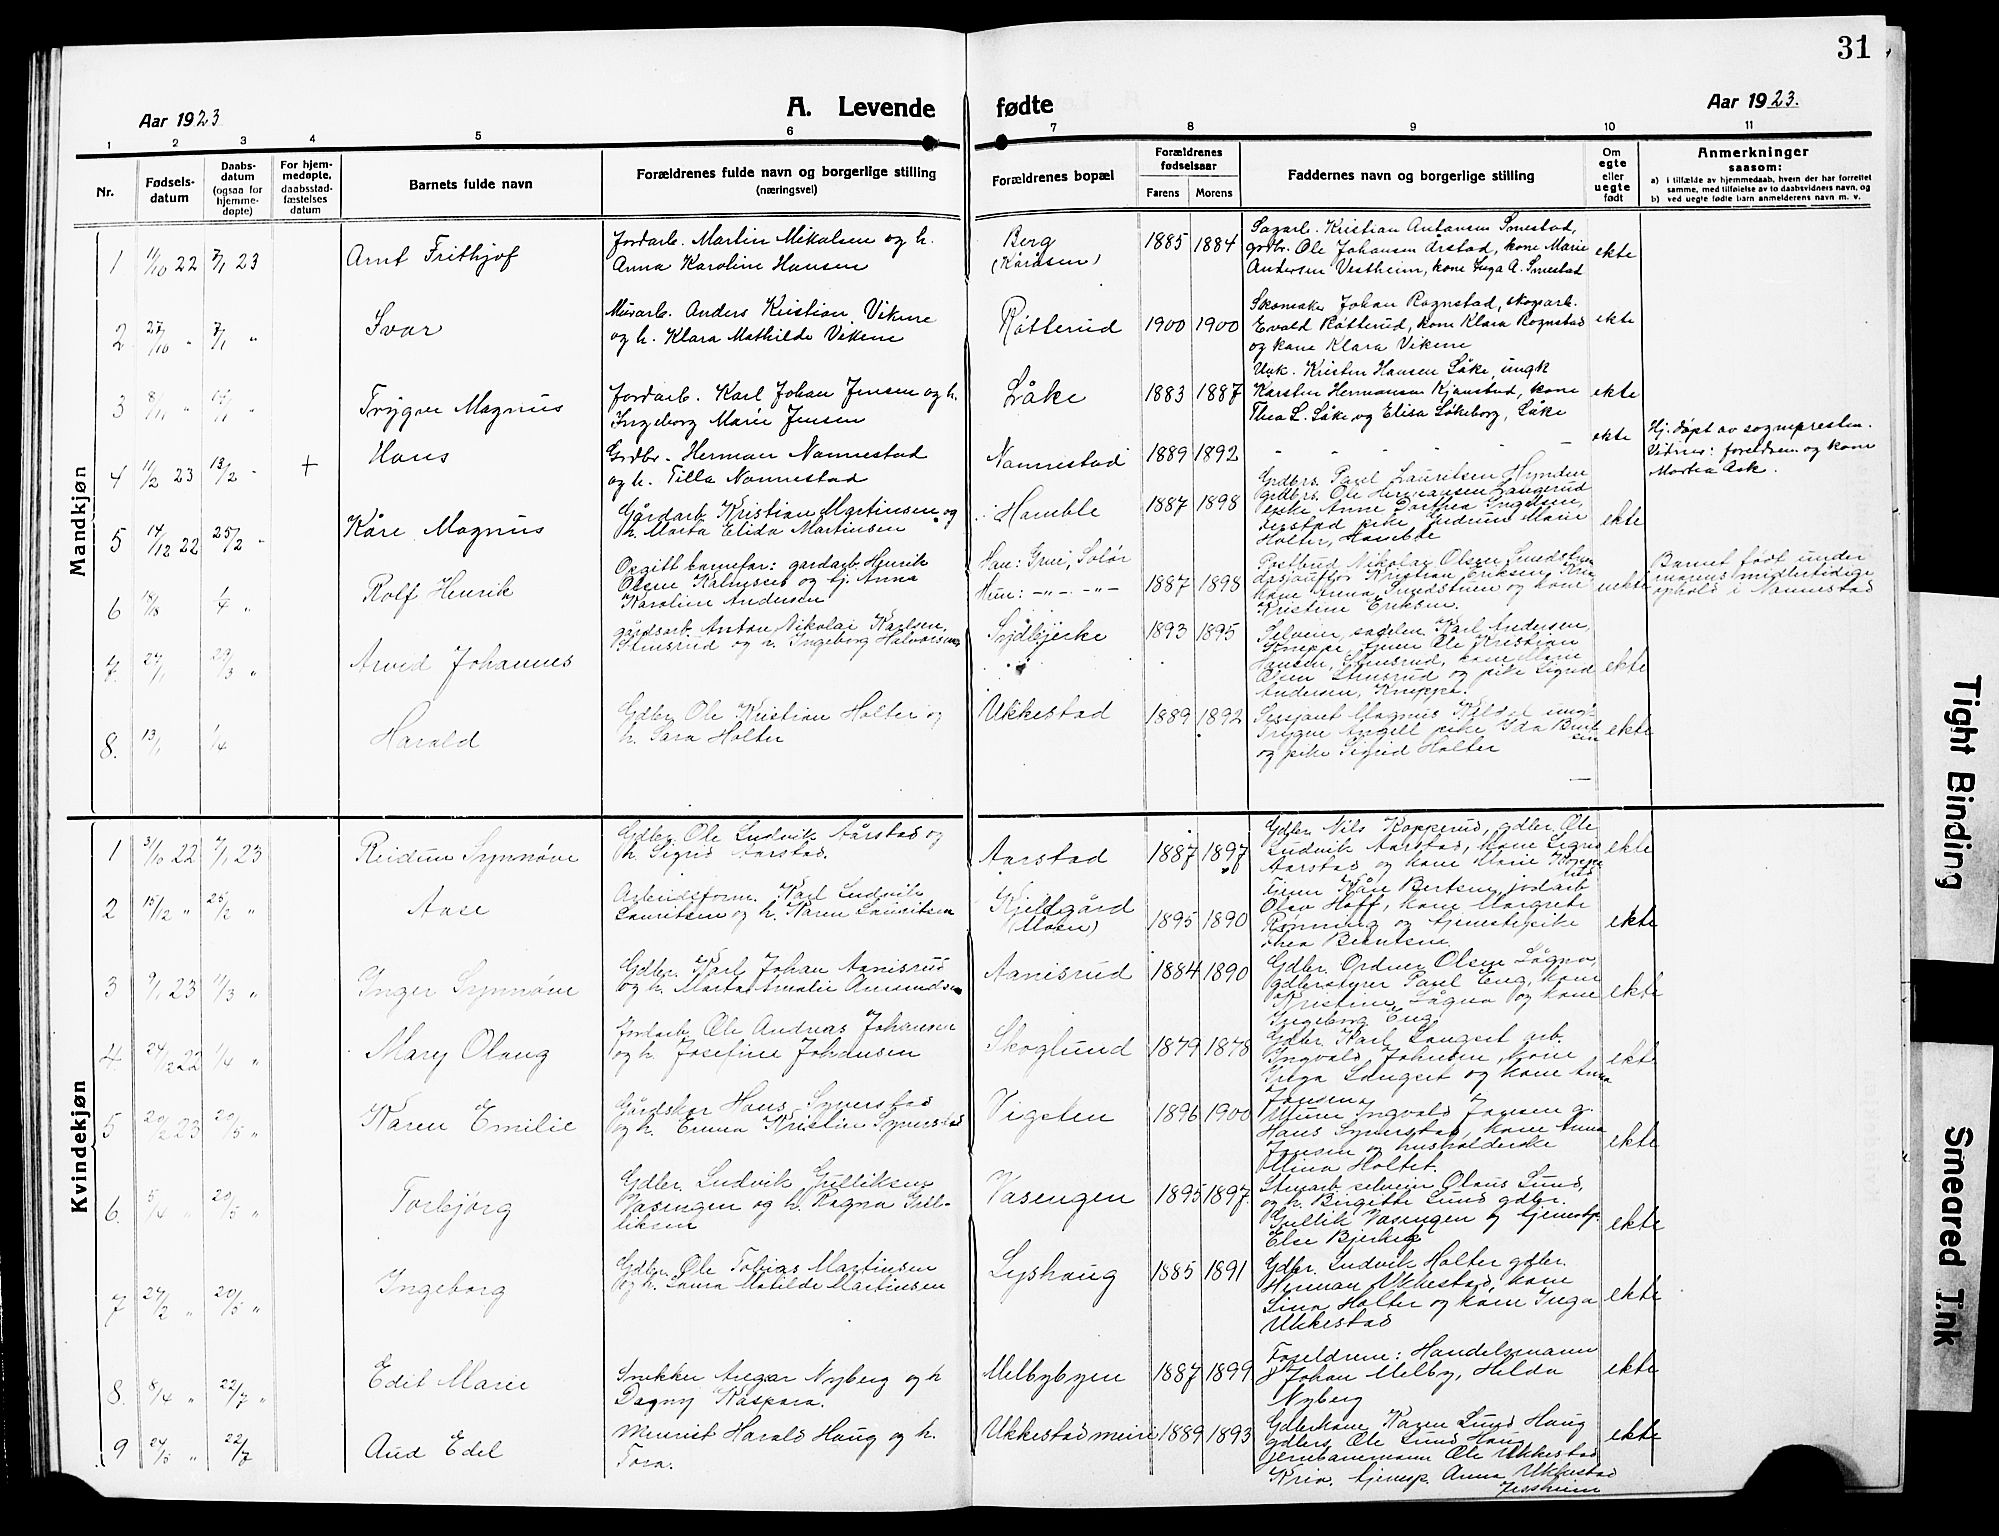 31
Aar 1923
A. Levende fødte
Aar 1923.
1 2 3 4 5 6 7 8 9 10 11
Nr.
Fødsels-
datum
Daabs-
datum
(ogsaa for
hjemme-
døpte)
For hjem-
medøpte,
daabsstad-
fæstelses
datum
Barnets fulde navn
Forældrenes fulde navn og borgerlige stilling
(næringsvei)
Forældrenes bopæl
Forældrenes
fødselsaar
Farens Morens
Faddernes navn og borgerlige stilling
Om
egte
eller
uegte
født
Anmerkninger
saasom:
a) i tilfælde av hjemmedaab, hvem der har forrettet
samme, med tilføielse av to daabsvidners navn, og
b) ved uegte fødte barn anmelderens navn m. v.
Mandkjøn
1 11/10 22 7/1 23
Arnt Frithjof
Jordarb. Martin Mikalsen og h.
Anna Karoline Hansen
Berg
(Kåråsen)
1885 1884
Sagarb. Kristian Antonsen Smestad,
grdbr. Ole Johansen Årstad, kone Marie
Andersen Vestheim, kone Inga A. Smestad
ekte
2 27/10 " 7/1 "
Ivar
Murarb. Anders Kristian Vikene
og h. Klara Mathilde Vikene
Røtterud
1900 1900
Skomaker Johan Rognstad, skogsarb.
Evald Røtterud, kone Klara Rognstad
og kone Klara Vikene
ekte
3 8/11 " 14/1 "
Trygve Magnus
Jordarb. Karl Johan Jensen og h.
Ingeborg Marie Jensen
Låke
1883 1887
Ungk. Kristen Hansen Låke, ungk
Karsten Hermansen Kjønstad, kone
Thea L. Låke og Elisa Løkeborg, Låke
ekte
4 11/2 23 13/2 -
+
Hans
Grdbr. Herman Nannestad
og h. Tilla Nannestad
Nannestad
1889 1892
" " " " —
ekte
Hj. døpt av sognepresten.
Vitner: foreldrene og kone
Martea Ask.
5 14/12 22 25/2 -
Kåre Magnus
Gårdarb. Kristian Martinsen og
h. Marta Elida Martinsen
Hamble
1887 1898
Grdbrs. Paul Lauritsen Hynden
grdbrs. Ole Hermansen Langerud
pike Anne Dorthea Ingelsen,
pike Gudrun Marie
Holter, Hamble
ekte
6 18/8 1/4 "
Rolf Henrik
Opgitt barnefar: gardarb. Henrik
Olsen Kalnesset og tj. Anna
Karoline Andersen
Han: Grue, Solør
Hun: -"- -"-
1887 1898
Postbud Nikolai Olsen Sundstuen
Kristian Eriksen, Kria
kone Anna Sundstuen og kone
Kristine Eriksen.
uekte
Barnet født under
morens midlertidige
ophold i Nannestad
7. 27/1 29/3 "
Arvid Johannes
gårdsarb. Anton Nikolai Karlsen,
Stensrud og h. Ingeborg Halvorsen
Sydbjerke
1893 1895
Selveier, sadelm. Karl Andersen,
Kneppe, tjener Ole Kristian
Hansen, Stensrud, kone Marie
Olsen Stensrud og pike Sigrid
Andersen, Kneppe.
ekte
8. 13/1 1/4
Harald
Gdbr. Ole Kristian Holter og
h. Sara Holter
Ukkestad
1889 1892
Sersjant Magnus Kildal ung.
Trygve Engell pike Ida Bentsen
og pike Sigrid Holter
ekte
Kvindekjøn
1 31/10 22 7/1 23
Reidun Synnøve
Gdbr. Ole Ludvik Aarstad og
h. Sigrid Aarstad.
Aarstad
1887 1897
Gdbr. Nils Kopperud, gdbr. Ole
Ludvik Aarstad, kone Sigrid
Aarstad og kone Marie Kopperud
ekte
2 15/12 " 25/2 "
Aase
Arbeidsform. Karl Ludvik
Lauritsen og h. Karen Lauritsen
Kjeldgård
(Moen)
1895 1890
Tjener Kåre Berntsen, jordarb
Olav Hoff, kone Margrete
Rønning og tjenestepike
Thea Berntsen
ekte
3 9/1 23 11/3 "
Inger Synnøve
Gdbr. Karl Johan Aanisrud
og h. Marta Amalie Amundsen
Aanisrud
1884 1890
Gdbr. Ordner Olsen Lågna,
gdbrstyrer Paul Eng, kone
Kristine Lågna og kone
Ingeborg Eng.
ekte
4 24/12 22 1/4 "
Mary Olaug
Jordarb Ole Andreas Johansen
og h. Josefine Johansen
Skoglund
1879 1878
Gdbr. Karl Langset arb.
Ingvald Johnsen, kone
Inga Langset og kone Anna
Jansen
ekte
5 20/2 23 20/5 "
Karen Emilie
Gårdskar Hans Synerstad
og h. Emma Kristin Synerstad
Vigsten
1896 1900
Murer Ingvald Jansen g.
Hans Synerstad, kone Anna
Jansen og husholderske
Mina Holtet.
ekte
6. 5/4 " 20/5 "
Torbjørg
Gdbr. Ludvik Gulliksen
Vasengen og h. Ragna Gul-
liksen
Vasengen
1895 1897.
Stenarb. selveier Olaus Lund,
og h. Birgitte Lund gdbr.
Gullik Vasengen og tjenestp.
Else Bjerke
ekte
7 24/2 " 20/5 "
Ingeborg
Gdbr. Ole Tobias Martinsen
og h. Laura Matilde Martinsen
Lyshaug
1885 1891
Gdbr. Ludvik Holter gdbr.
Herman Ukkestad, kone
Lina Holter og kone Inga
Ukkestad
ekte
8. 8/4 " 22/7 "
Edit Marie
Snekker Aregar Nyberg og h
Dagny Kaspara.
Melbybyen
1887 1899
Foreldrene: Handelsmann
Johan Melby, Hilda
Nyberg
ekte
9 24/5 " 22/7
Aud Edel
Meierist Harald Haug og h.
Tora.
Ukkestad meieri
1889 1893
Gdbrkone Karen Lund Haug
gdbrs Ole Lund Haug
jernbanemann Ole Ukkestad
Kria. tjenesp. Anna Ukkestad
Jessheim
ekte
Tight Binding
Smeared Ink